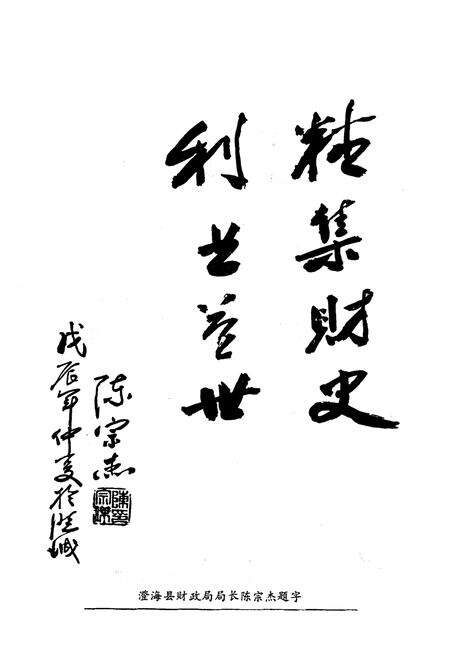 精集財史
利益世
陈宗杰
戊辰年仲夏於澄城
澄海县财政局局长陈宗杰题字